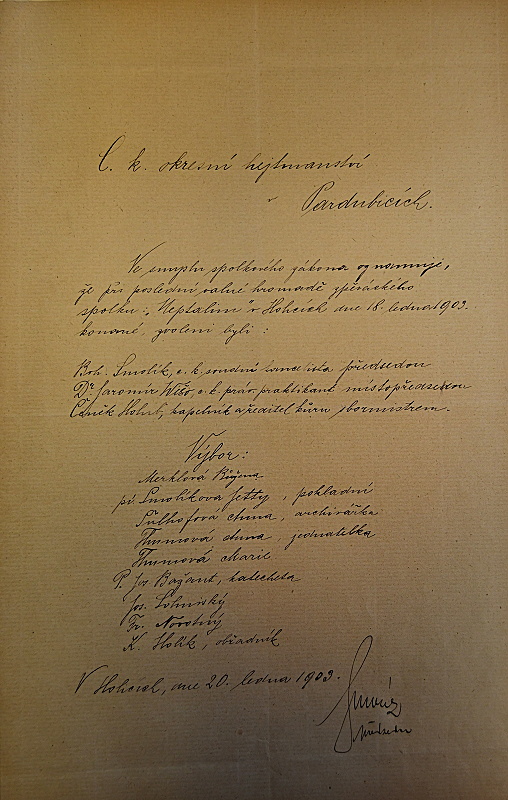 C. k. okresní hejtmanství
v
Pardubicích.
Ve smyslu spolkového zákona oznamuji,
že při poslední valné hromadě pěveckého
spolku: „Neptalim" v Holicích dne 18. ledna 1903.
konané, zvoleni byli:
Boh. Smolík, c. k. soudní kancelista předsedou
Dr Jaromír c. k. práv. praktikant místopředsedou
Čeněk kapelník a ředitel kůru sbormistrem.
Výbor:
Merklová Božena
pí. Smolíkova Jetty, pokladní
Šulhofová Anna, archivářka
Anna, jednatelka
Marie
P. Jos. Bažant, katecheta
Jos.
Fr. Novotný
K. Holík, pořadník
V Holicích, dne 20. ledna 1903.
Smolík
předseda